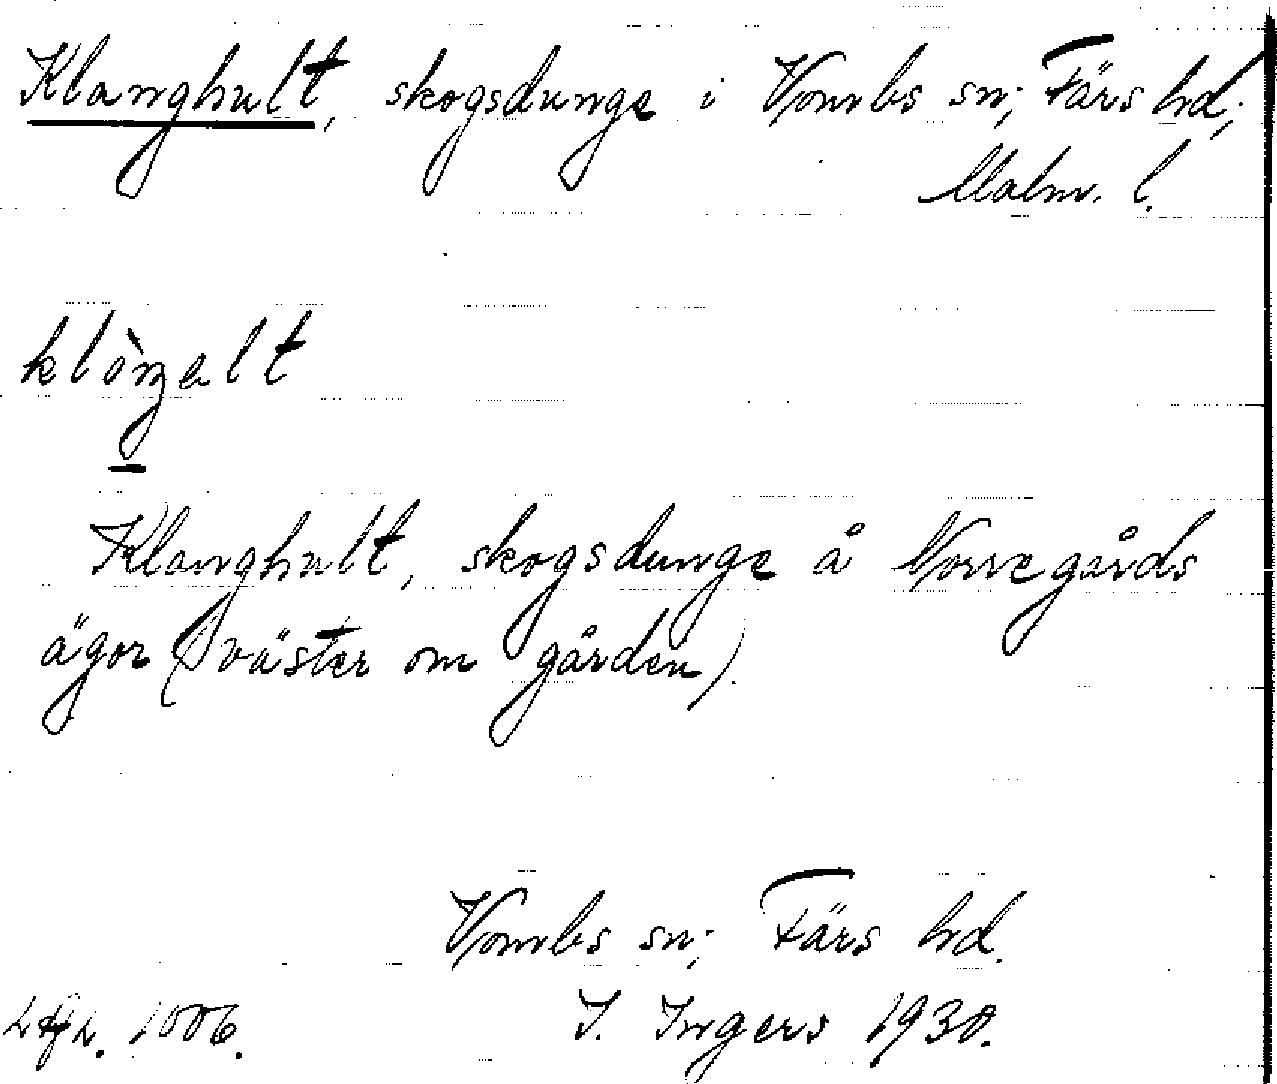 Klanghult, skogsdunge i Vombs sn; Färs hd;
Malm. l.
Klanghult, skogsdunge å Norregårds
ägor (väster om gården).
Vombs sn; Färs hd.
1006.
I. Ingers 1930.